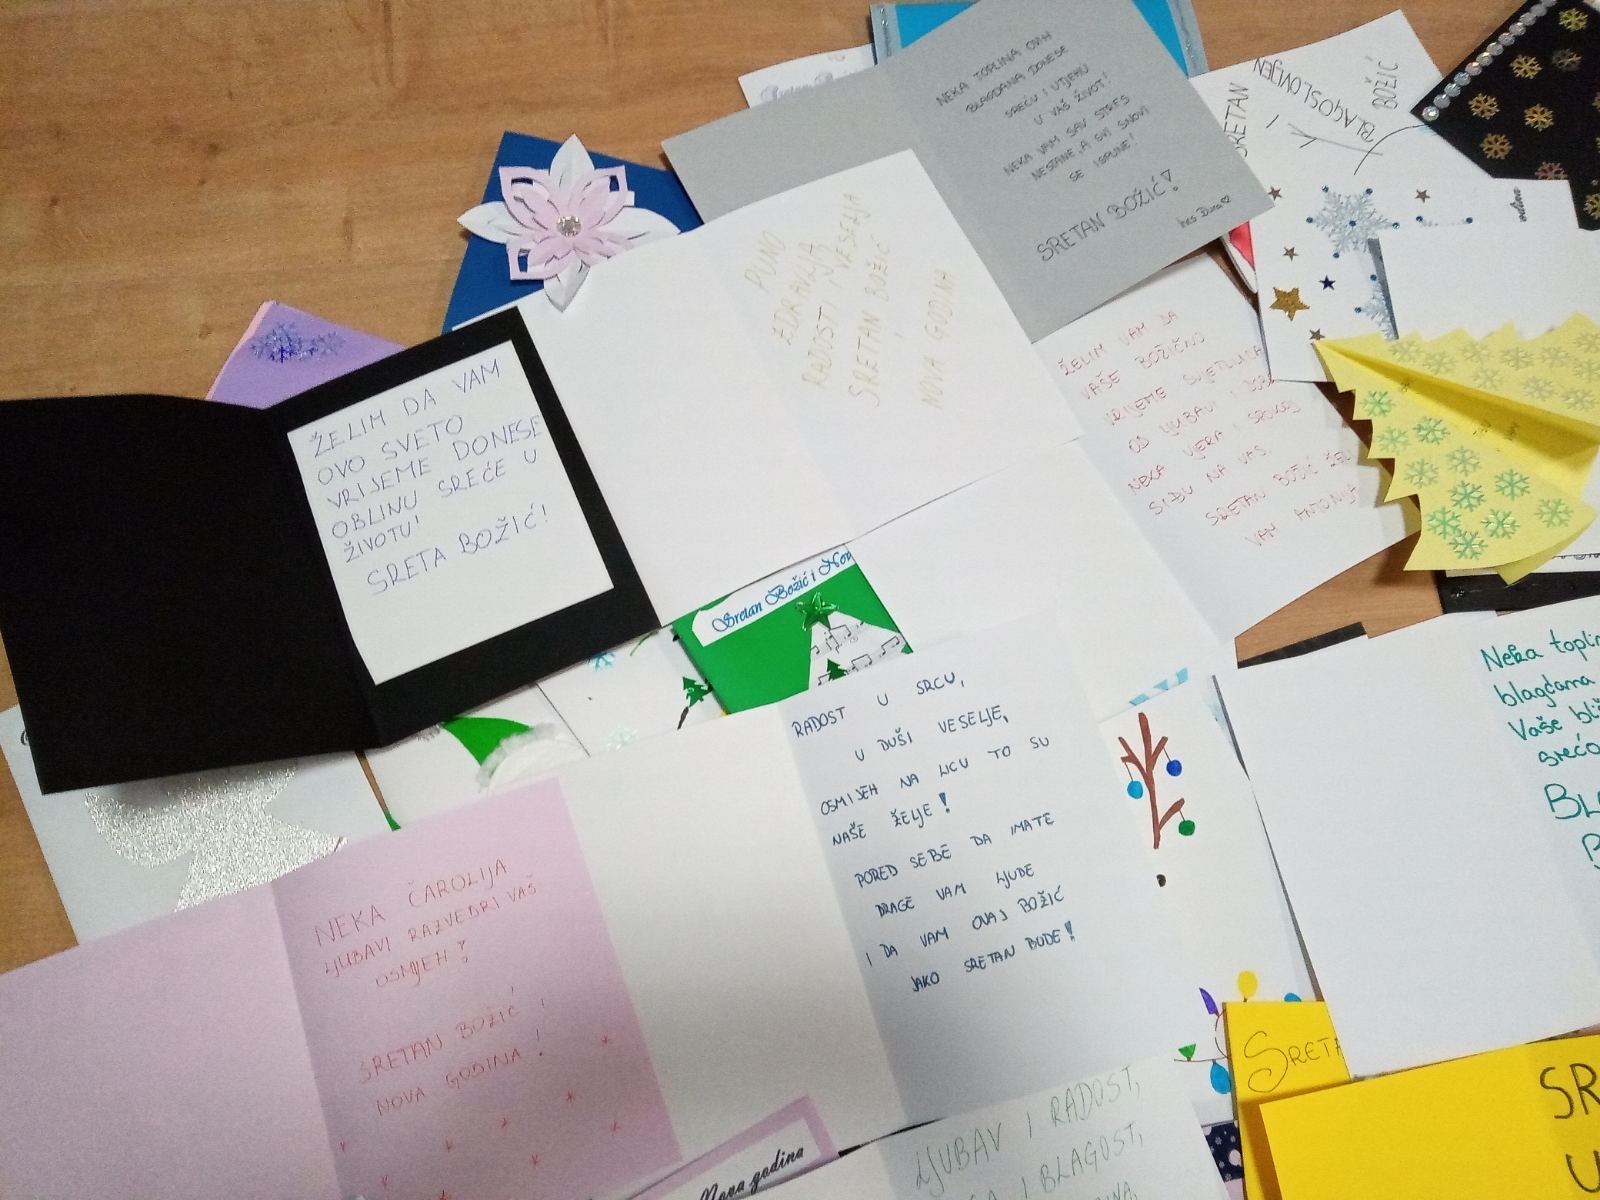 NEKA TOPLINA OVIH
BLAGDANA DONESE
SREĆU I UTJEHU
U VAŠ ŽIVOT!
NEKA VAM SAV STRES
NESTANE, A SVI SNOVI
SE ISPUNE!
SRETAN BOŽIĆ!
SRETAN
I
BLAGOSLOVLJEN
BOŽIĆ
PUNO
ZDRAVLJA
RADOSTI I VESELJA
SRETAN BOŽIĆ
I
NOVA GODINA
ŽELIM VAM DA
VAŠE BOŽIĆNO
VRIJEME SVJETLUCA
OD LJUBAVI I
NEKA VJERA I SPOKOJ
SIĐU NA VAS.
SRETAN BOŽIĆ ŽELI
VAM ANTONIJA
ŽELIM DA VAM
OVO SVETO
VRIJEME DONESE
OBLINU SREĆE U
ŽIVOTU!
SRETA BOŽIĆ!
Sretan Božić i Nov
RADOST U SRCU,
U DUŠI VESELJE,
OSMIJEH NA LICU TO SU
NAŠE ŽELJE!
PORED SEBE DA IMATE
DRAGE VAM LJUDE
I DA VAM OVAJ BOŽIĆ
JAKO SRETAN BUDE!
Neka toplin
blagdana
Vaše bli
srećo
BL
B
NEKA ČAROLIJA
LJUBAVI RAZVEDRI VAŠ
OSMJEH!
SRETAN BOŽIĆ I
NOVA GODINA!
Nova godina
LJUBAV I RADOST,
I BLAGOST,
SRETA
SR
U